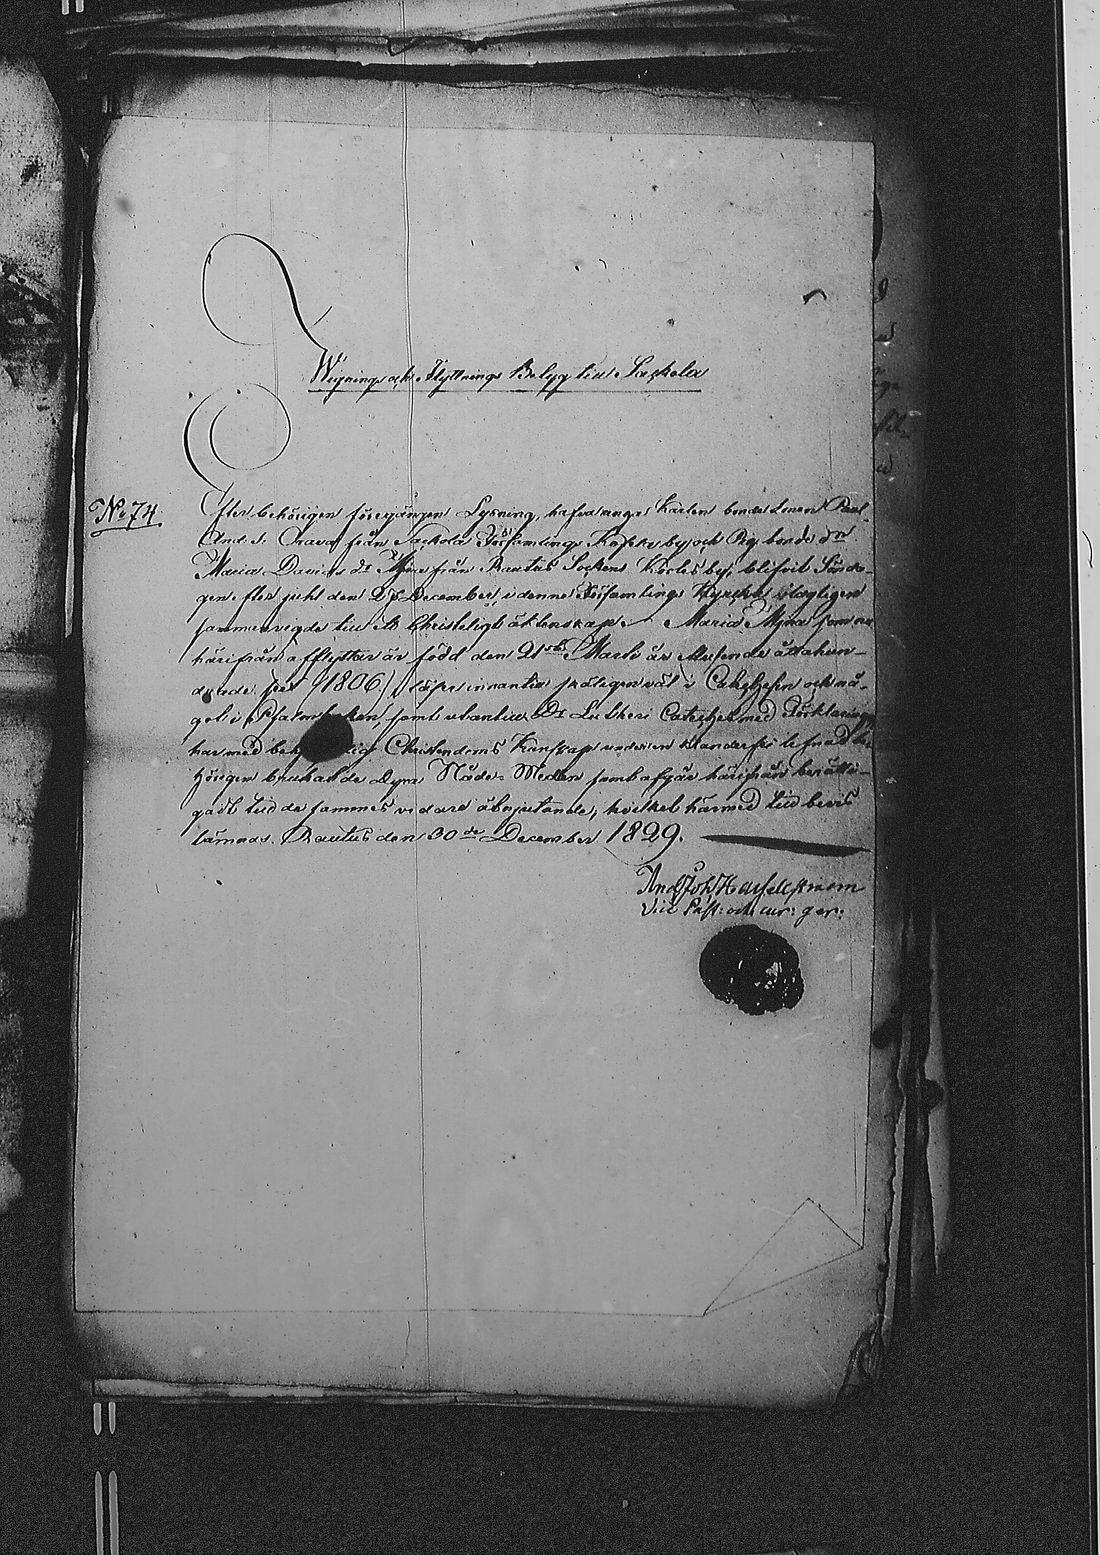 Wignings och Flyttnings Belyg till Sackola
No 74.
Efter behörigen föregången Lysning, hafva unga Karlen bonde Sonen Paul
And. s. Orava från Sackola Församlings by och Ryborde dr
Maria Davids dr Myra från Rautus Sockens Korlesby, blifvit Sönda-
gen efter juhl den December, i denne Församlings Kyrcka wlagligen
sammanvigde till Et Christeligt äktenskap. Maria Myra som nu
härifrån afflyttar är född den 21sta Martii år Ett tusende åttahun-
drade sex /1806/, läser innantill skäligen väl i Catechesen och nå-
got i Psalmboken, samt utantill Dr Lutheri Catechez med Förklaring
har med Christendoms Kunskap under en klanderfri lefnad be-
hörigen brukat de dyra Nåde-Medlen samt afgår härifrån berätti-
gad till de sammas vidare åtnjutande, hvilket härmed till bevis
lämnas. Rautus den 30de December 1829.
And Joh Hasselström
Vice Past: och cur: ger: